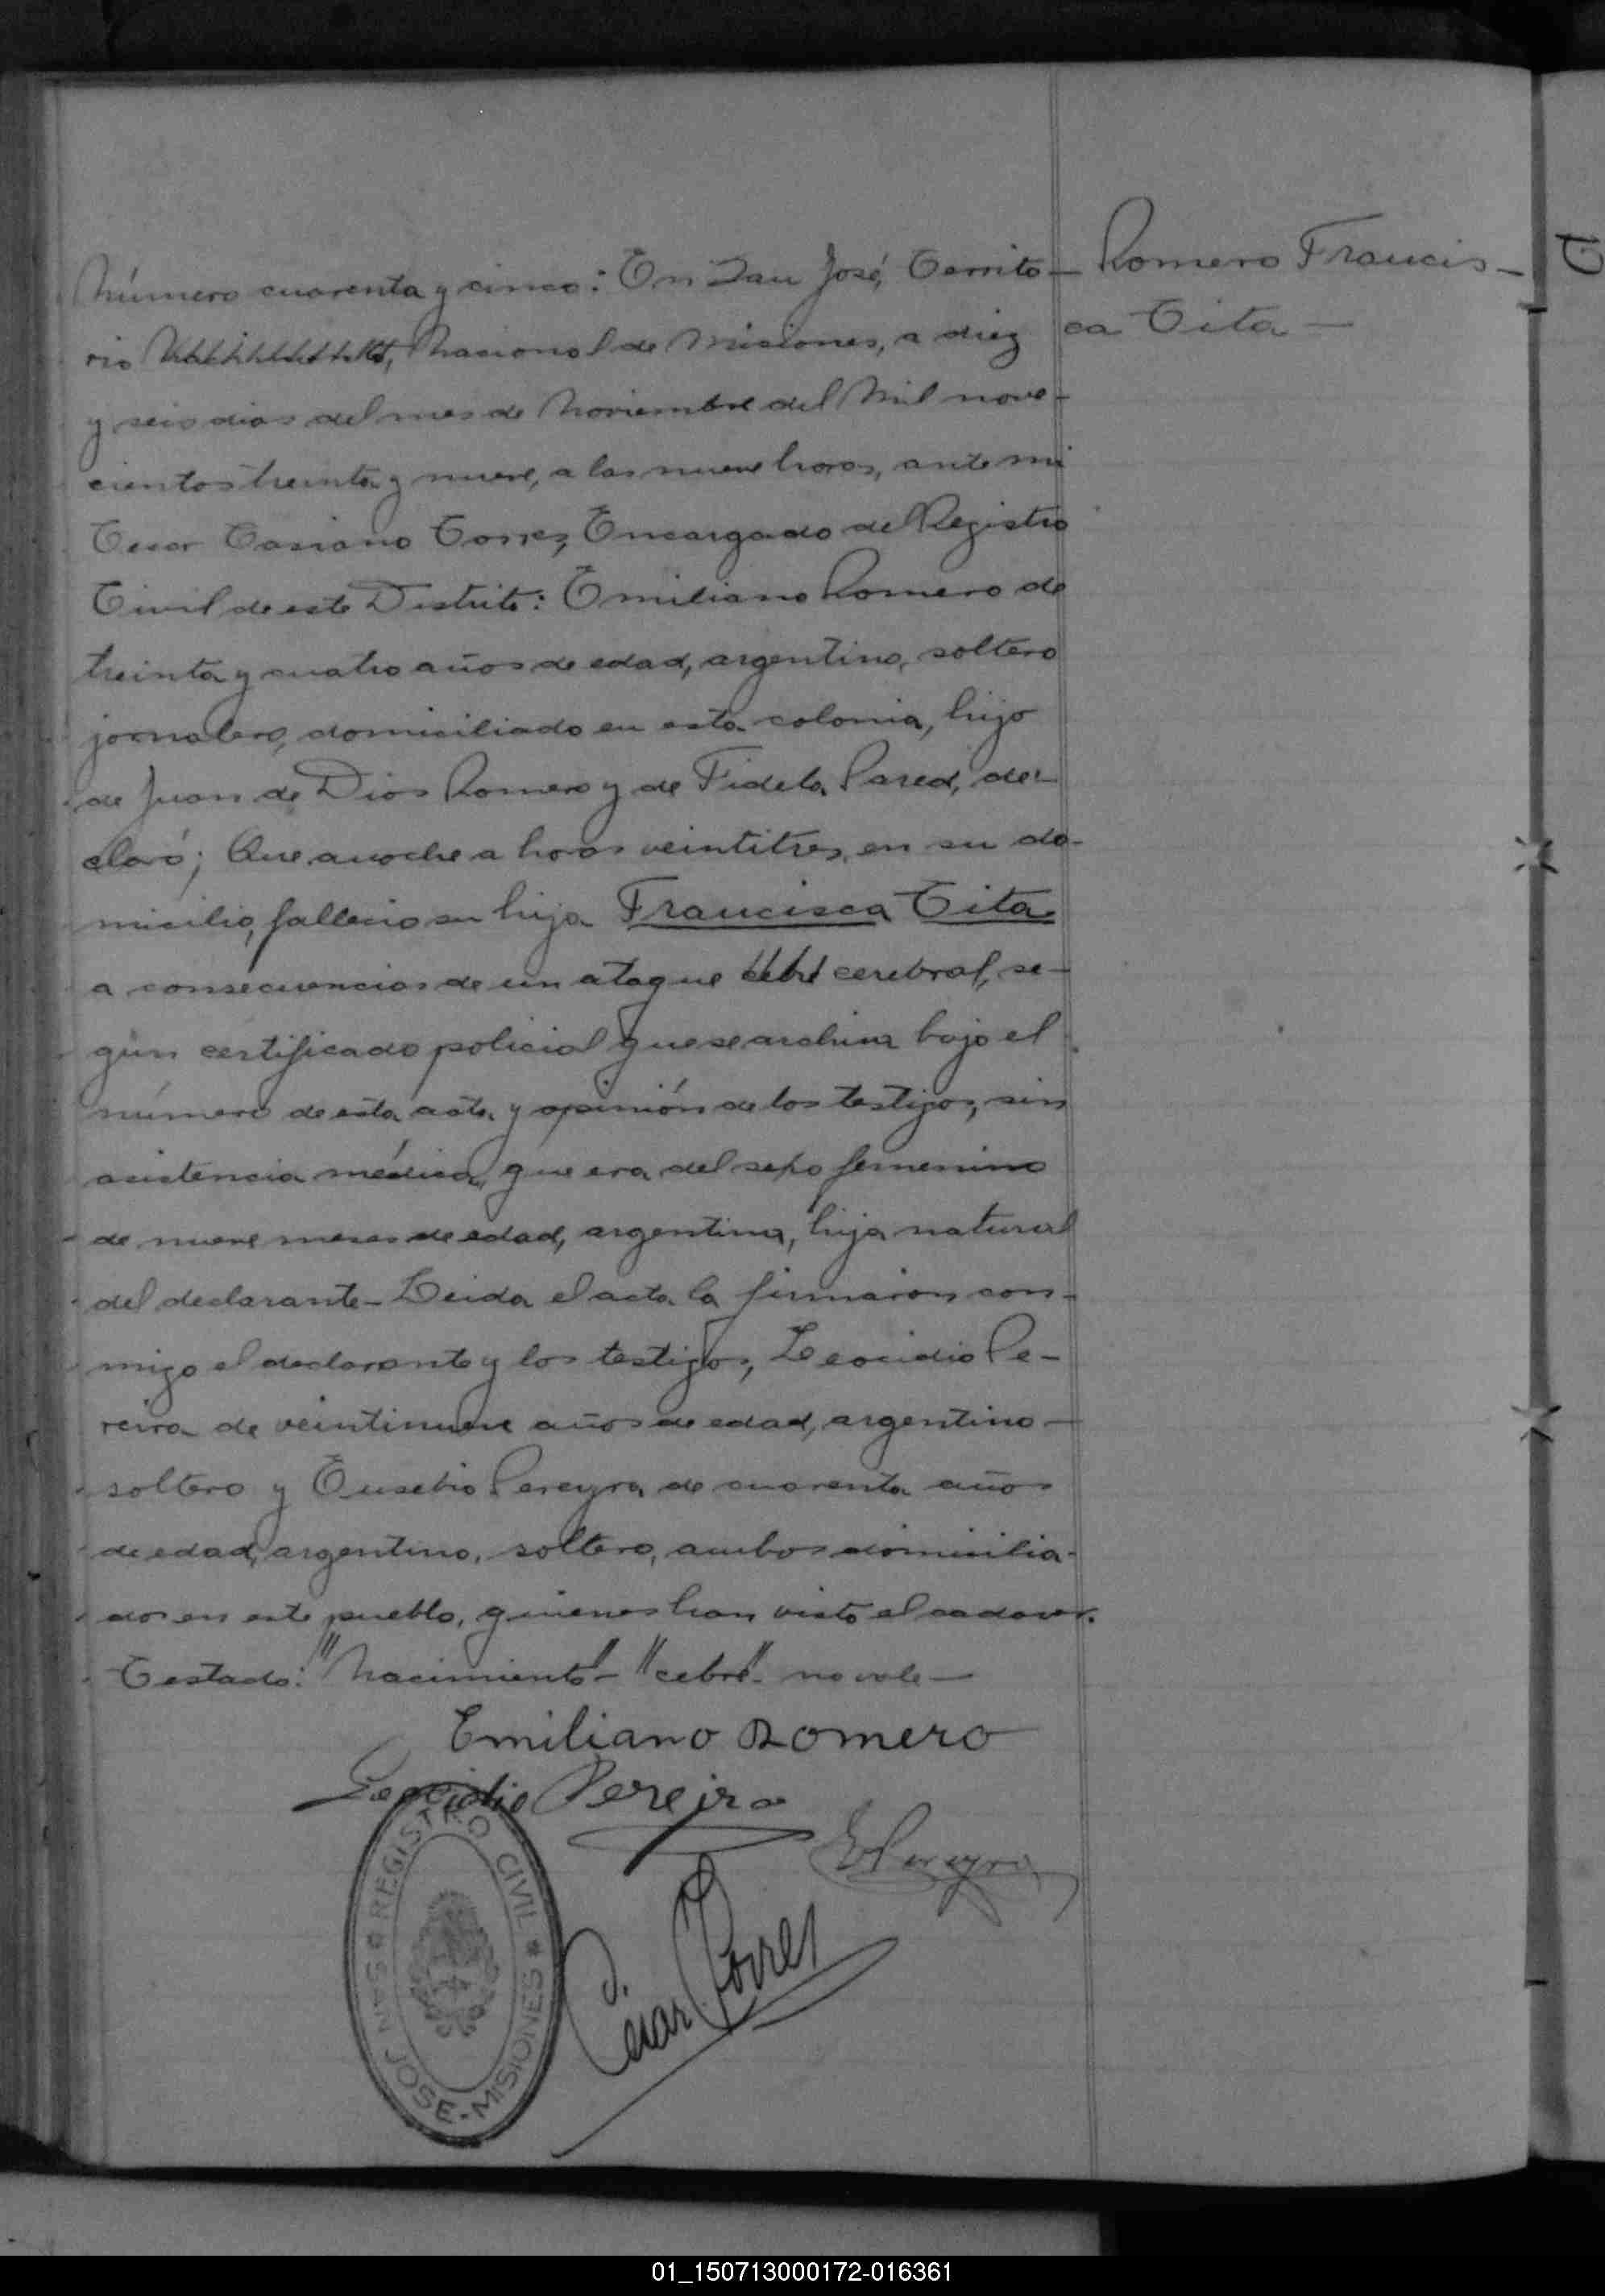 Romero Francis-
ca Tita—
Número cuarenta y cinco: En San José, Territo-
rio Nacimiento, Nacional de Misiones, a diez
y seis dias del mes de Noviembre del Mil nove-
cientos treinta y nueve, a las nueve horas, ante mi
Cesar Casiano Torres, Encargado del Registro
Civil de este Distrito: Emiliano Romero de
treinta y cuatro años de edad, argentino, soltero
jornalero, domiciliado en esta colonia, hijo
de Juan de Dios Romero y de Fidela Pared, de-
claró; Que anoche a horas veintitres, en su do-
micilio, fallecio su hija Francisca Tita
a consecuencias de un ataque cebre cerebral, se-
gún certificado policial que se archiva bajo el
número de esta acta y opinión de los testigos, sin
asistencia médica, que era del sexo femenino
de nueve meses de edad, argentina, hija natural
del declarante- Leida el acta la firmaron con-
migo el declarante y los testigos, Leocidio Pe-
reira de veintinueve años de edad, argentino-
soltero y Eusebio Pereyra de cuarenta años
de edad, argentino, soltero, ambos domicilia-
dos en este pueblo, quienes han visto el cadaver.
Testado: "Nacimiento"- "cebre"- no vale—
Emiliano Romero
Leocidio Pereira
E Pereyra
Cesar C. Torres
REGISTRO CIVIL
SAN JOSE-MISIONES
01_150713000172-016361